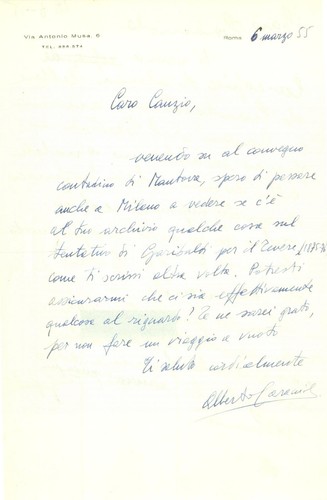 Via Antonio Musa, 6
TEL. 859.074
Roma 6 marzo 55
Caro Canzio,
venendo su al convegno
contadino di Mantova, spero di passare
anche a Milano a vedere se c'è
al tuo archivio qualche cosa sul
tentativo di Garibaldi per il Tevere, 1875-76
come ti scrissi altra volta. Potresti
assicurarmi che ci sia effettivamente
qualcosa al riguardo? Te ne sarei grato,
per non fare un viaggio a vuoto
Ti saluto cordialmente
Alberto